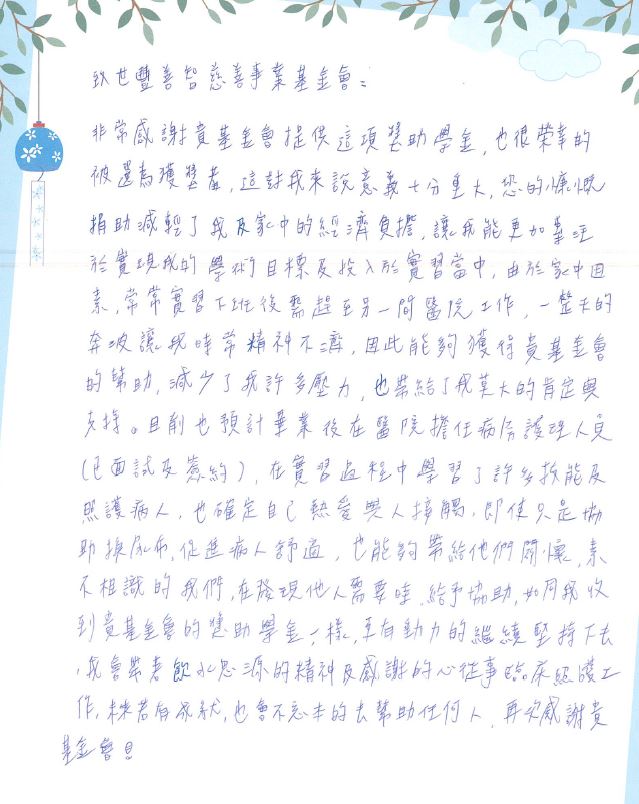 致世豐善智慈善事業基金會：
非常感謝貴基金會提供這項獎助學金，也很榮幸的
被選為獲獎者，這對我來說意義十分重大，您的慷慨
捐助減輕了我及家中的經濟負擔，讓我能更加專注
於實現我的學術目標及投入於實習當中，由於家中因
素，常常實習下班後需趕至另一間醫院工作，一整天的
奔波讓我時常精神不濟，因此能夠獲得貴基金會
的幫助，減少了我許多壓力，也帶給了我莫大的肯定與
支持。目前也預計畢業後在醫院擔任病房護理人員
(已面試及簽約)，在實習過程中學習了許多技能及
照護病人，也確定自己熱愛與人接觸，即使只是協
助換尿布，促進病人舒適，也能夠帶給他們關懷，素
不相識的我們，在發現他人需要時，給予協助，如同我收
到貴基金會的獎助學金一樣，更有動力的繼續堅持下去
，我會帶著飲水思源的精神及感謝的心從事臨床照護工
作，未來若有成就，也會不忘本的去幫助任何人，再次感謝貴
基金會！